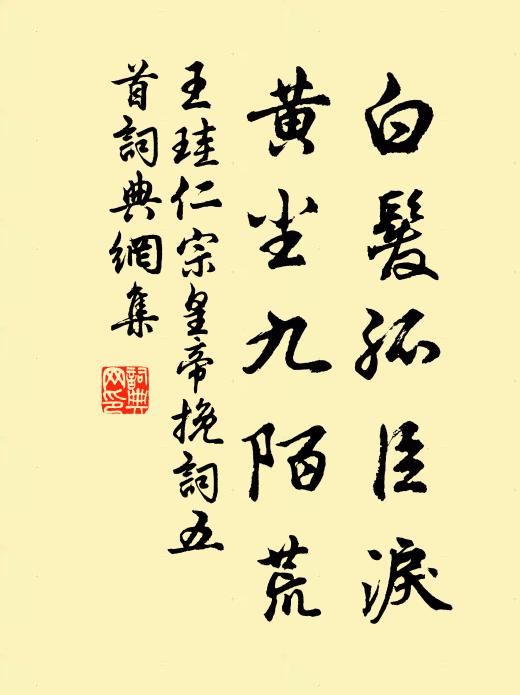 白髮孤臣淚
黃尘九陌荒
王珪仁宗皇帝挽詞五
首詞典網集
詞典
网印